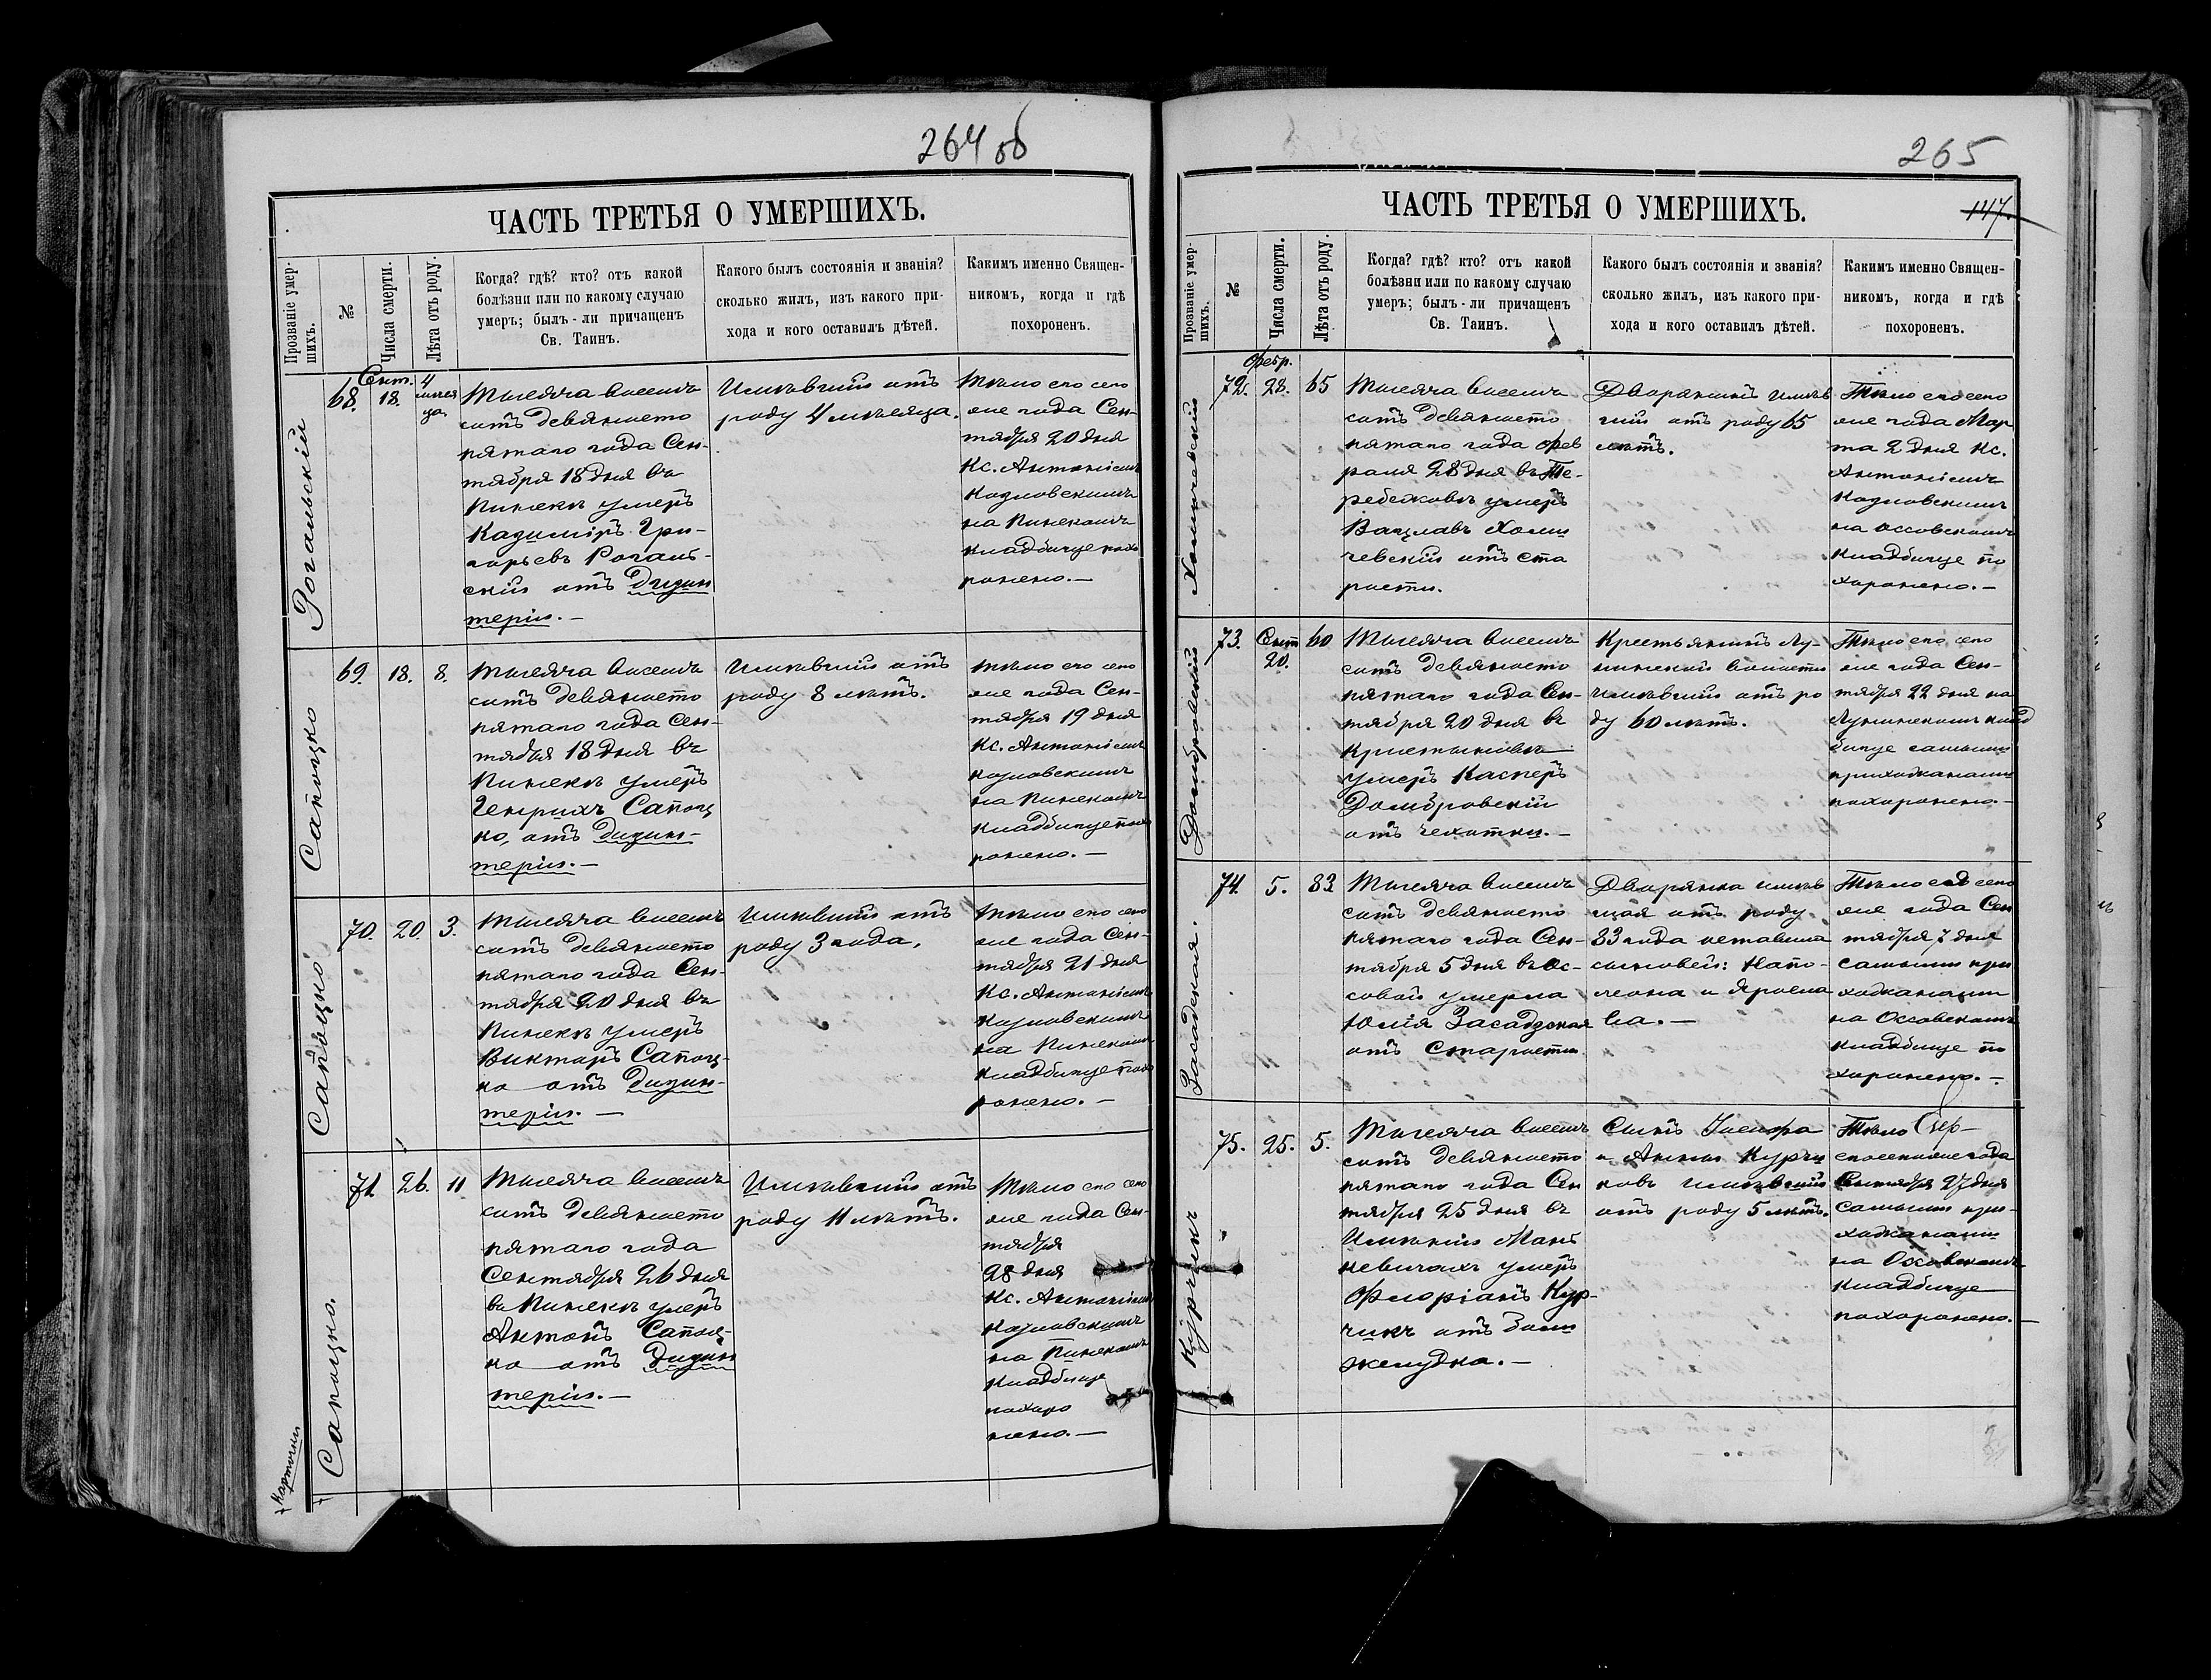 264 об
ЧАСТЬ ТРЕТЬЯ О УМЕРШИХЪ.
Прозваніе умер-
шихъ.
№
Числа смерти.
Лѣта отъ роду.
Когда? гдѣ? кто? отъ какой
болѣзни или по какому случаю
умеръ; былъ-ли причащенъ
Св. Таинъ.
Какого былъ состоянія и званія?
сколько жилъ, изъ какого при-
хода и кого оставилъ дѣтей.
Какимъ именно Священ-
никомъ, когда и гдѣ
похороненъ.
Рогальскій
68.
Сент.
18.
4
месяца
Тысяча восемь
сотъ девяносто
пятаго года Сен-
тября 18 дня въ
Пинскѣ умеръ
Казиміръ Гри-
горьевъ Рогаль-
скій отъ дизин
теріи. —
Имѣвшій отъ
роду 4 мѣсяца.
Тѣло его сего
же года Сен-
тября 20 дня
Кс. Антоніемъ
Козловскимъ
на Пинскомъ
кладбище похо
ронено. —
Сапоцко
69.
18.
8.
Тысяча восемь
сотъ девяносто
пятаго года Сен-
тября 18 дня въ
Пинскѣ умеръ
Генрихъ Сапоц
ко, отъ дизин-
теріи. —
Имѣвшій отъ
роду 8 лѣтъ.
Тѣло его сего
же года Сен-
тября 19 дня
Кс. Антоніемъ
Козловскимъ
на Пинскомъ
кладбище похо
ронено. —
Сапоцко
70.
20.
3.
Тысяча восемь
сотъ девяносто
пятаго года Сен-
тября 20 дня въ
Пинскѣ умеръ
Викторъ Сапоц-
ко отъ дизин-
теріи. —
Имѣвшій отъ
роду 3 года.
Тѣло его сего
же года Сен-
тября 21 дня
Кс. Антоніемъ
Козловскимъ
на Пинскомъ
кладбище похо
ронено. —
Сапоцко.
71.
26.
11
Тысяча восемь
сотъ девяносто
пятаго года
Сентября 26 дня
въ Пинскѣ умеръ
Антонъ Сапоц-
ко отъ дизин
теріи. —
Имѣвшій отъ
роду 11 лѣтъ.
Тѣло его сего
же года Сен-
тября
28 дня
Кс. Антоніемъ
Козловскимъ
на Пинскомъ
кладбище
похоро
нено. —
265
147.
ЧАСТЬ ТРЕТЬЯ О УМЕРШИХЪ.
Прозваніе умер-
шихъ.
№
Числа смерти.
Лѣта отъ роду.
Когда? гдѣ? кто? отъ какой
болѣзни или по какому случаю
умеръ; былъ-ли причащенъ
Св. Таинъ.
Какого былъ состоянія и званія?
сколько жилъ, изъ какого при-
хода и кого оставилъ дѣтей.
Какимъ именно Священ-
никомъ, когда и гдѣ
похороненъ.
Холмчевскій
72.
Февр.
28.
65
Тысяча восемь
сотъ девяносто
пятаго года Фев
раля 28 дня въ Те-
ребежовѣ умеръ
Вацлавъ Холм
чевскій отъ ста
рости.
Дворянинъ имѣв
шій отъ роду 65
лѣтъ.
Тѣло его сего
же года Мар
та 2 дня Кс.
Антоніемъ
Козловскимъ
на Оссовскомъ
кладбище по
хоронено. —
Домбровскій
73.
Сент
20.
60
Тысяча восемь
сотъ девяносто
пятаго года Сен-
тября 20 дня въ
Кристыновѣ
умеръ Касперъ
Домбровскій
отъ чехотки. —
Крестьянинъ Лу-
нинской волости
имѣвшій отъ ро
ду 60 лѣтъ.
Тѣло его сего
же года Сен-
тября 22 дня на
Лунинскомъ клад
бище самыми
прихожанами
похоронено. —
Засадская.
74.
5.
83
Тысяча восемь
сотъ девяносто
пятаго года Сен-
тября 5 дня въ Ос-
совой умерла
Юлія Засадзская
отъ старости
Дворянка имѣв
щая отъ роду
83 года оставила
сыновей: Напо-
леона и Яросла
ва. —
Тѣло её сего
же года Сен
тября 7 дня
самыми при
хожанами
на Оссовскомъ
кладбище по
хоронено. —
Курчикъ
75.
25.
5.
Тысяча восемь
сотъ девяносто
пятаго года Сен
тября 25 дня въ
Имѣніи Мань
кевичахъ умеръ
Флоріанъ Кур-
чикъ отъ боли
желудка. —
Сынъ
и Анны Курчи
ковъ имѣвшій
отъ роду 5 лѣтъ.
Тѣло
его сего же года
Сентября 27 дня
самыми при-
хожанами
на Оссовскомъ
кладбище
похоронено. —